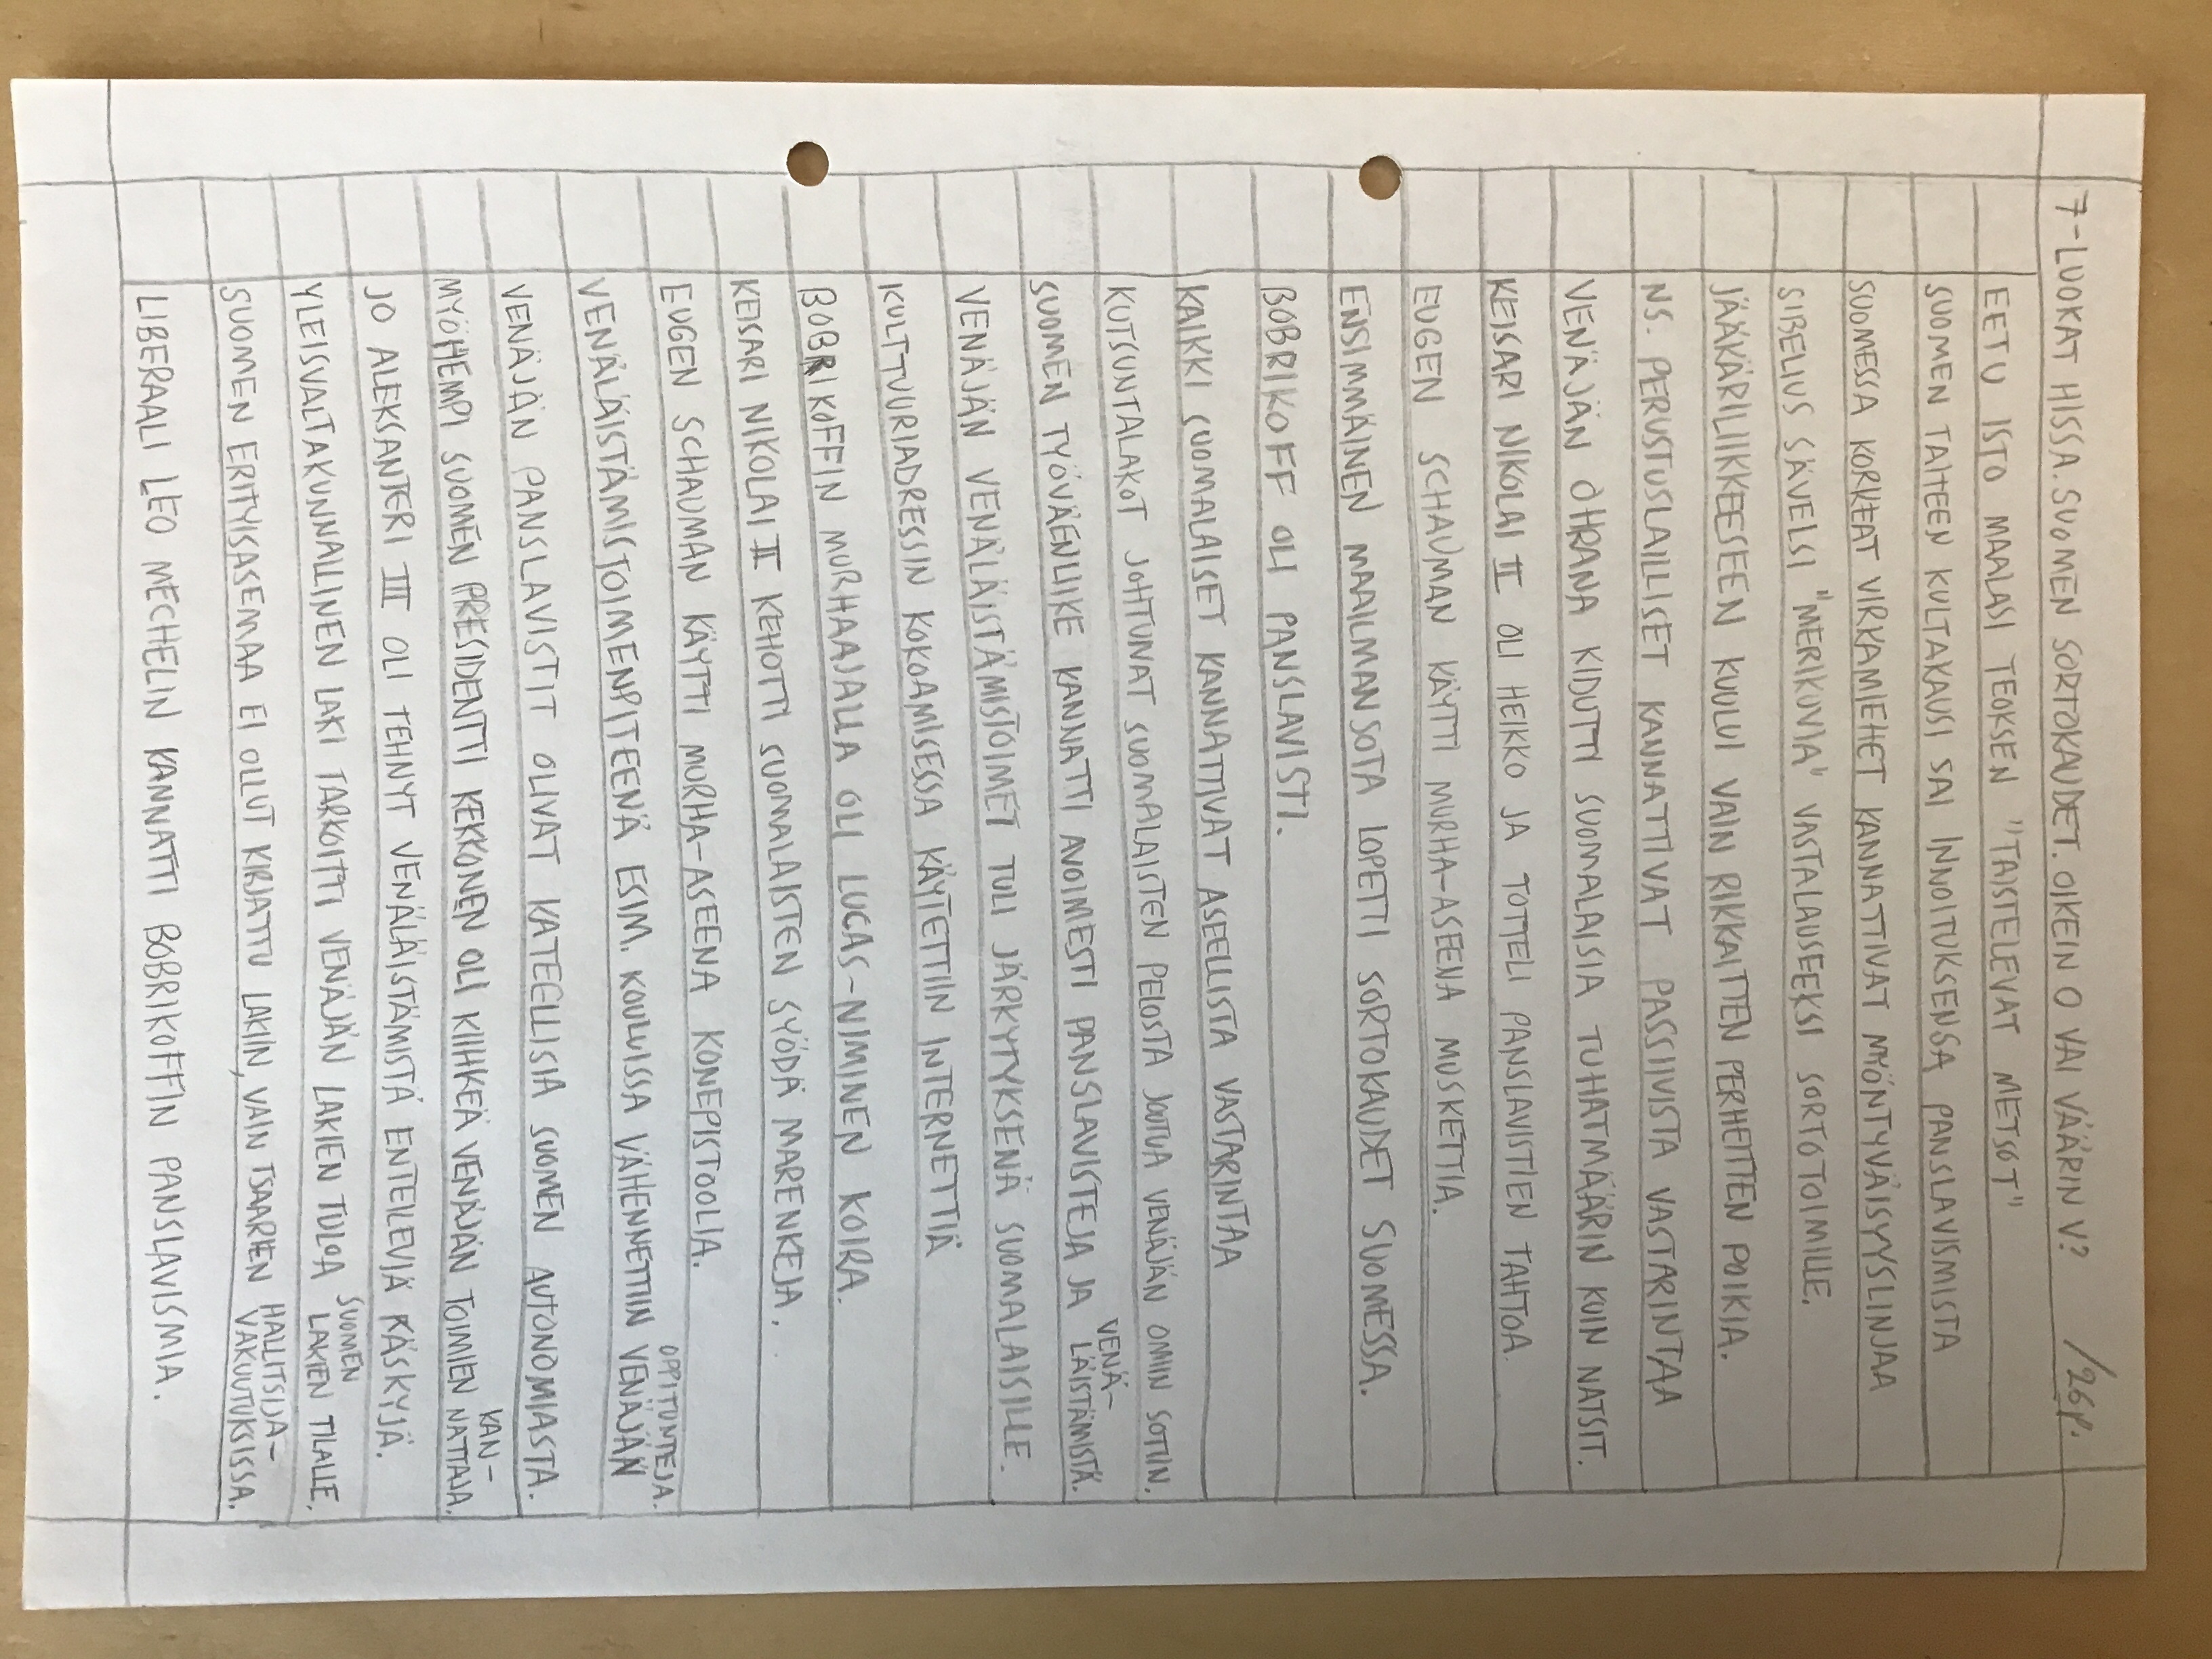 7-LUOKAT HISSA. SUOMEN SORTOKAUDET. OIKEIN O VAI VÄÄRIN V? /26p.
EETU ISTO MAALASI TEOKSEN "TAISTELEVAT METSOT"
SUOMEN TAITEEN KULTAKAUSI SAI INNOITUKSENSA PANSLAVISMISTA
SUOMESSA KORKEAT VIRKAMIEHET KANNATTIVAT MYÖNTYVÄISYYSLINJAA
SIBELIUS SÄVELSI "MERIKUVIA" VASTALAUSEEKSI SORTOTOIMILLE.
JÄÄKÄRILIIKKEESEEN KUULUI VAIN RIKKAITTEN PERHEITTEN POIKIA.
NS. PERUSTUSLAILLISET KANNATTIVAT PASSIIVISTA VASTARINTAA
VENÄJÄN OHRANA KIDUTTI SUOMALAISIA TUHATMÄÄRIN KUIN NATSIT.
KEISARI NIKOLAI II OLI HEIKKO JA TOTTELI PANSLAVISTIEN TAHTOA.
EUGEN SCHAUMAN KÄYTTI MURHA-ASEENA MUSKETTIA.
ENSIMMÄINEN MAAILMANSOTA LOPETTI SORTOKAUDET SUOMESSA.
BOBRIKOFF OLI PANSLAVISTI.
KAIKKI SUOMALAISET KANNATTIVAT ASEELLISTA VASTARINTAA
KUTSUNTALAKOT JOHTUIVAT SUOMALAISTEN PELOSTA JOUTUA VENÄJÄN OMIIN SOTIIN.
SUOMEN TYÖVÄENLIIKE KANNATTI AVOIMESTI PANSLAVISTEJA JA VENÄ-LÄISTÄMISTÄ.
VENÄJÄN VENÄLÄISTÄMISTOIMET TULI JÄRKYTYKSENÄ SUOMALAISILLE.
KULTTUURIADRESSIN KOKOAMISESSA KÄYTETTIIN INTERNETTIÄ
BOBRIKOFFIN MURHAAJALLA OLI LUCAS-NIMINEN KOIRA.
KEISARI NIKOLAI II KEHOTTI SUOMALAISTEN SYÖDÄ MARENKEJA.
EUGEN SCHAUMAN KÄYTTI MURHA-ASEENA KONEPISTOOLIA.
VENÄLÄISTÄMISTOIMENPITEENÄ ESIM. KOULUISSA VÄHENNETTIIN VENÄJÄN OPPITUNTEJA.
VENÄJÄN PANSLAVISTIT OLIVAT KATEELLISIA SUOMEN AUTONOMIASTA.
MYÖHEMPI SUOMEN PRESIDENTTI KEKKONEN OLI KIIHKEÄ VENÄJÄN TOIMIEN KAN-NATTAJA.
JO ALEKSANTERI III OLI TEHNYT VENÄLÄISTÄMISTÄ ENTEILEVIÄ KÄSKYJÄ.
YLEISVALTAKUNNALLINEN LAKI TARKOITTI VENÄJÄN LAKIEN TULOA SUOMEN LAKIEN TILALLE.
SUOMEN ERITYISASEMAA EI OLLUT KIRJATTU LAKIIN, VAIN TSAARIEN HALLITSIJA-VAKUUTUKSISSA.
LIBERAALI LEO MECHELIN KANNATTI BOBRIKOFFIN PANSLAVISMIA.